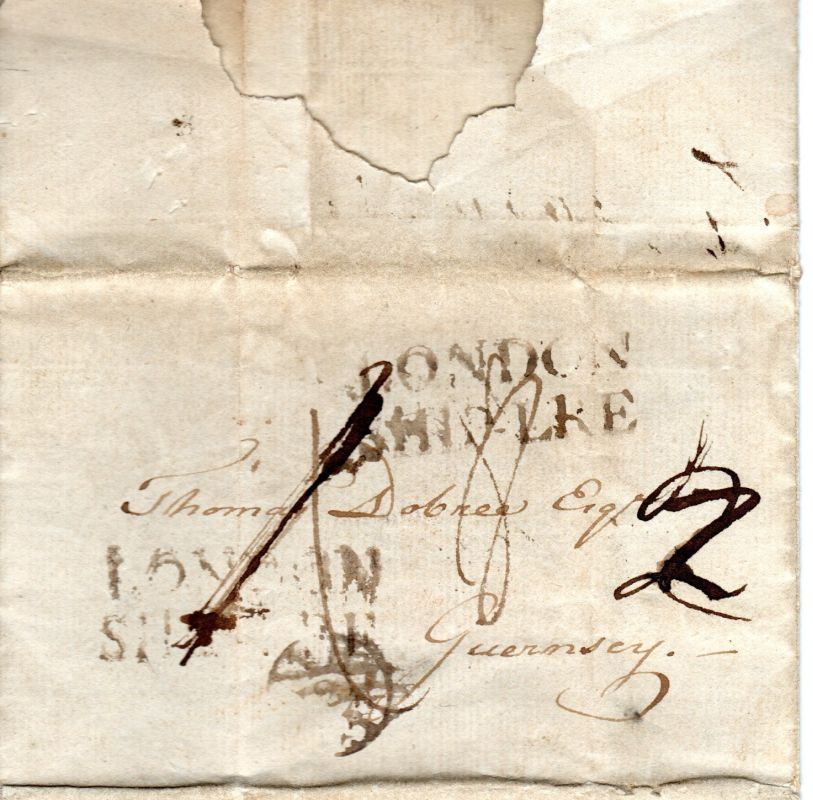 LONDON
SHIP-LRE
Thomas Dobree Esqr
LONDON
SHIP LRE
Guernsey. —
2